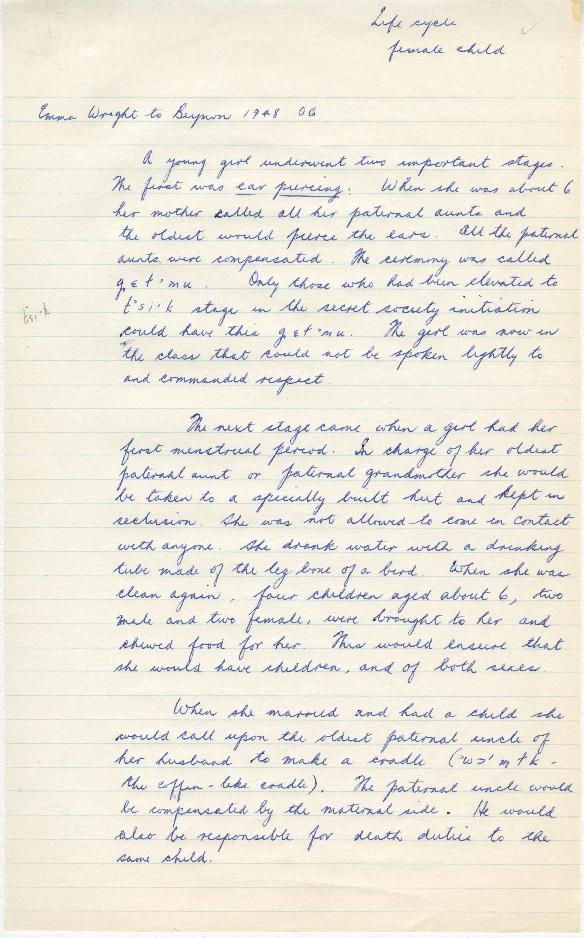 Life cycle
female child
Emma Wright to Beynon 1948 OG
A young girl underwent two important stages.
The first was ear piercing. When she was about 6
her mother called all her paternal aunts and
the oldest would pierce the ears. All the paternal
aunts were compensated. The ceremony was called
gɛt'mu. Only those who had been elevated to
t'si·k stage in the secret society initiation
could have this gɛt'mu. The girl was now in
the class that could not be spoken lightly to
and commanded respect.
The next stage came when a girl had her
first menstrual period. In charge of her oldest
paternal aunt or paternal grandmother she would
be taken to a specially built hut and kept in
seclusion. She was not allowed to come in contact
with anyone. She drank water with a drinking
tube made of the leg bone of a bird. When she was
clean again, four children aged about 6, two
male and two female, were brought to her and
chewed food for her. This would ensure that
she would have children, and of both sexes.
When she married and had a child she
would call upon the oldest paternal uncle of
her husband to make a cradle (
the coffin-like cradle). The paternal uncle would
be compensated by the maternal side. He would
also be responsible for death duties to the
same child.